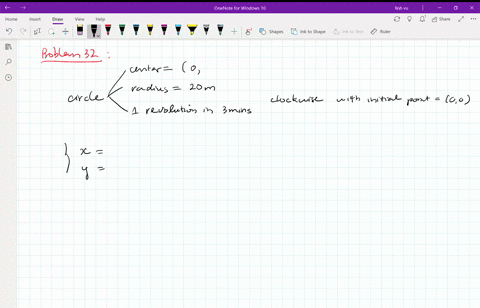 OneNote for Windows 10
linh vu
File Home Insert Draw View Help
Shapes Ink to Shape Ink to Text Ruler
Problem 32 :
center = (0,
radius = 20m
circle
1 revolution in 3 mins clockwise with initial point = (0,0)
x =
y =